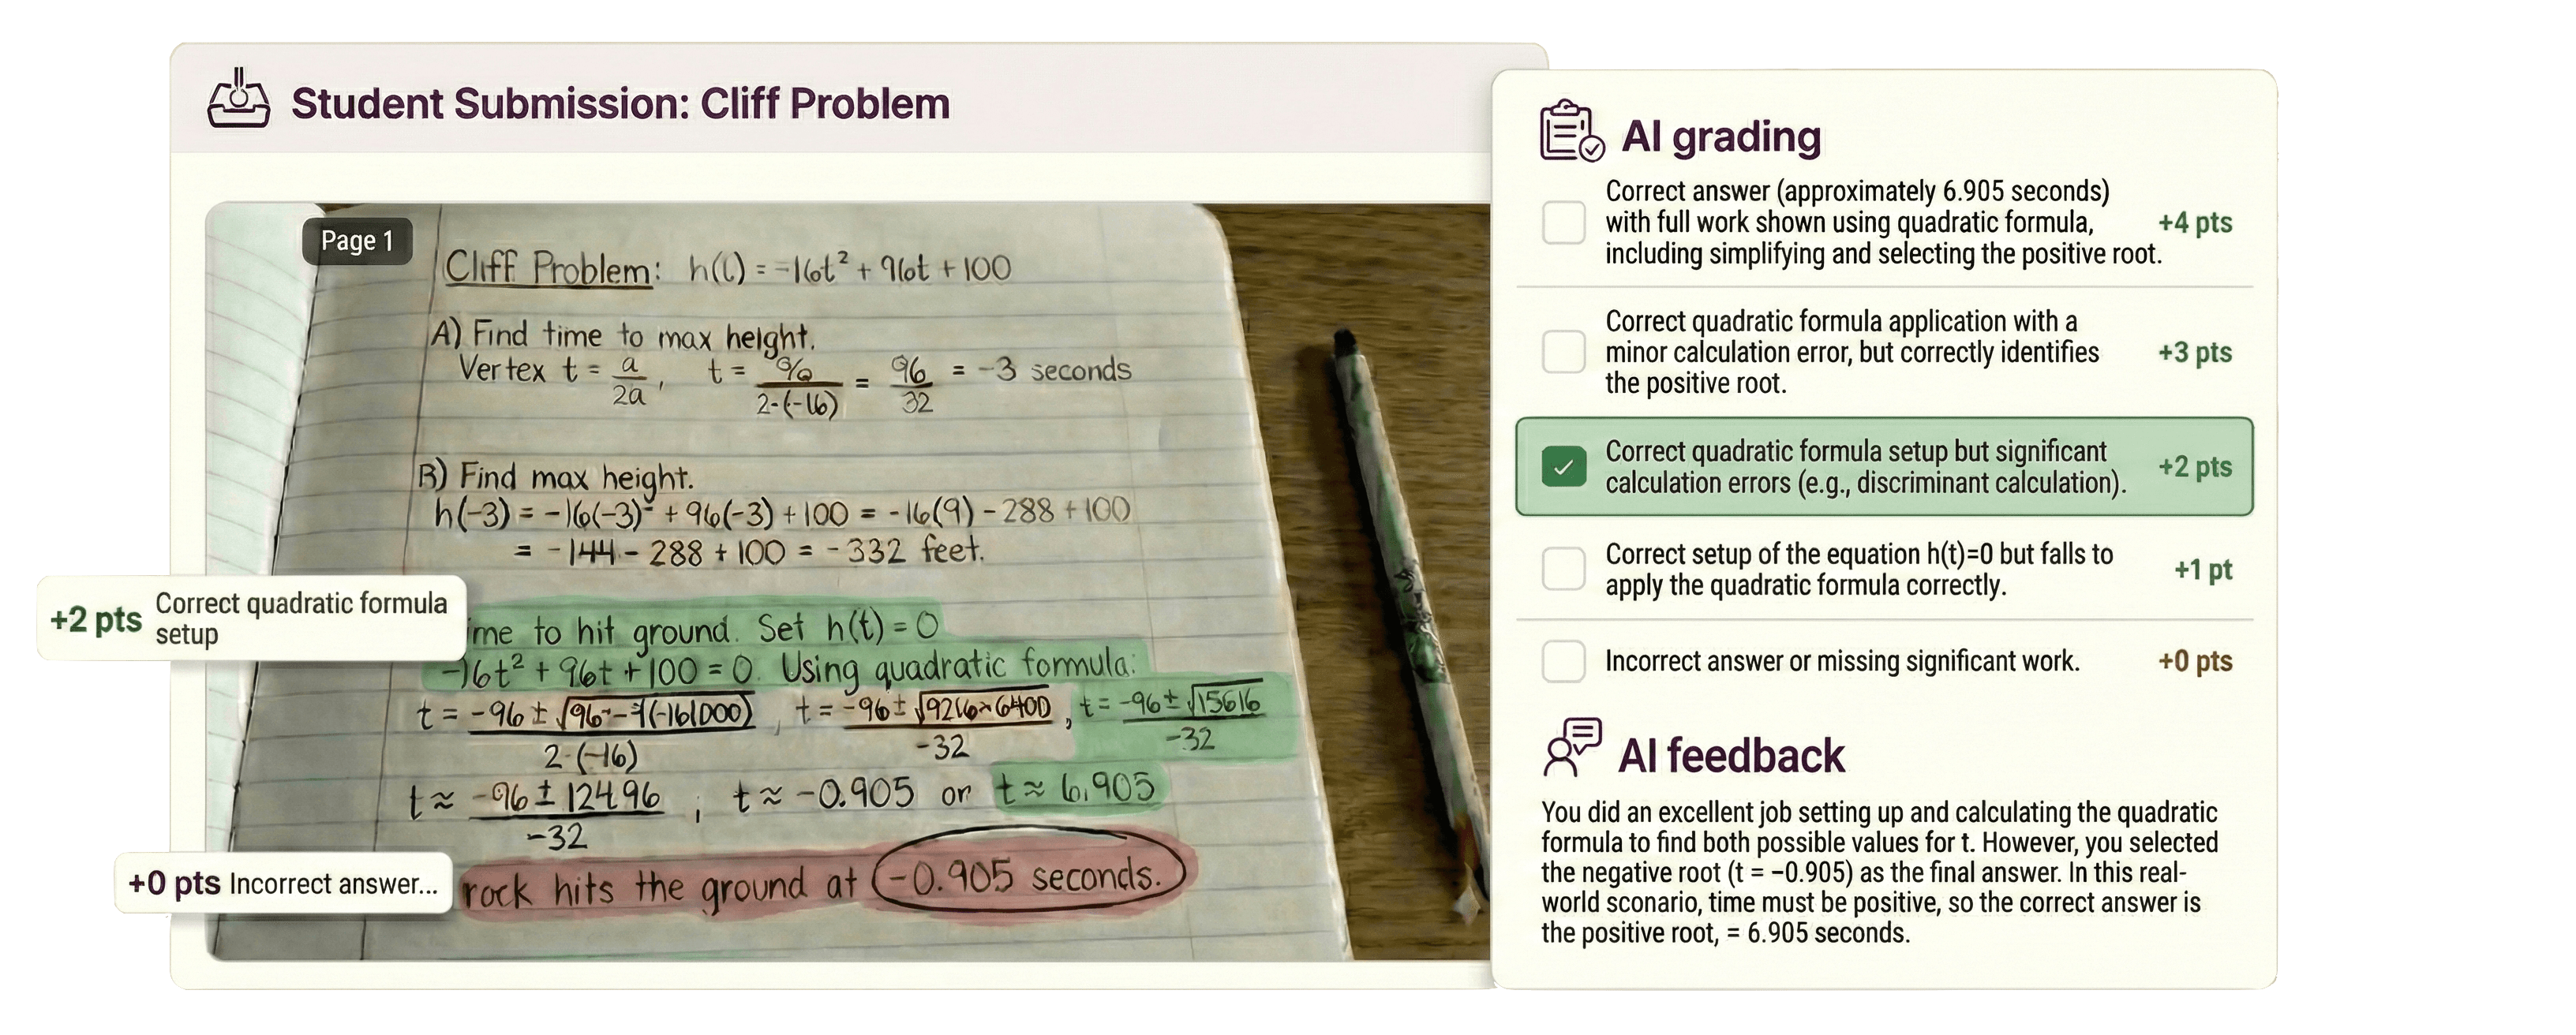 Student Submission: Cliff Problem
Page 1
Cliff Problem: h(t) = -16t² + 96t + 100
A) Find time to max height.
Vertex t = a/2a, t = 96/2·(-16) = 96/32 = -3 seconds
B) Find max height.
h(-3) = -16(-3)² + 96(-3) + 100 = -16(9) - 288 + 100
= -144 - 288 + 100 = -332 feet.
+2 pts Correct quadratic formula
setup
me to hit ground. Set h(t) = 0
-16t² + 96t + 100 = 0. Using quadratic formula:
t = -96 ± √ / 2·(-16) , t = -96 ± √ / -32 , t = -96 ± √15616 / -32
t ≈ -96 ± 12496 / -32 , t ≈ -0.905 or t ≈ 6.905
+0 pts Incorrect answer...
rock hits the ground at -0.905 seconds.
AI grading
Correct answer (approximately 6.905 seconds)
with full work shown using quadratic formula, +4 pts
including simplifying and selecting the positive root.
Correct quadratic formula application with a
minor calculation error, but correctly identifies +3 pts
the positive root.
Correct quadratic formula setup but significant +2 pts
calculation errors (e.g., discriminant calculation).
Correct setup of the equation h(t)=0 but falls to +1 pt
apply the quadratic formula correctly.
Incorrect answer or missing significant work. +0 pts
AI feedback
You did an excellent job setting up and calculating the quadratic
formula to find both possible values for t. However, you selected
the negative root (t = −0.905) as the final answer. In this real-
world sconario, time must be positive, so the correct answer is
the positive root, = 6.905 seconds.